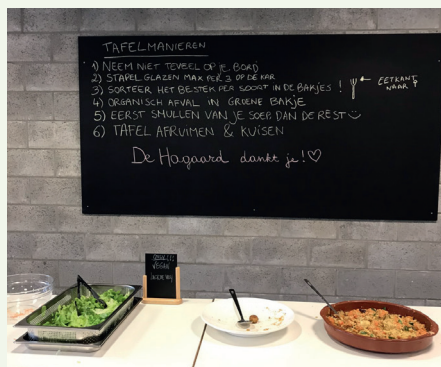 TAFELMANIEREN
1) NEEM NIET TEVEEL OP JE BORD
2) STAPEL GLAZEN MAX PER 3 OP DE KAR
3) SORTEER HET BESTEK PER SOORT IN DE BAKJES !
EETKANT
NAAR
4) ORGANISCH AFVAL IN GROENE BAKJE
5) EERST SMULLEN VAN JE SOEP, DAN DE REST
6) TAFEL AFRUIMEN & KUISEN
De Hagaard dankt je!♡
VEGAN